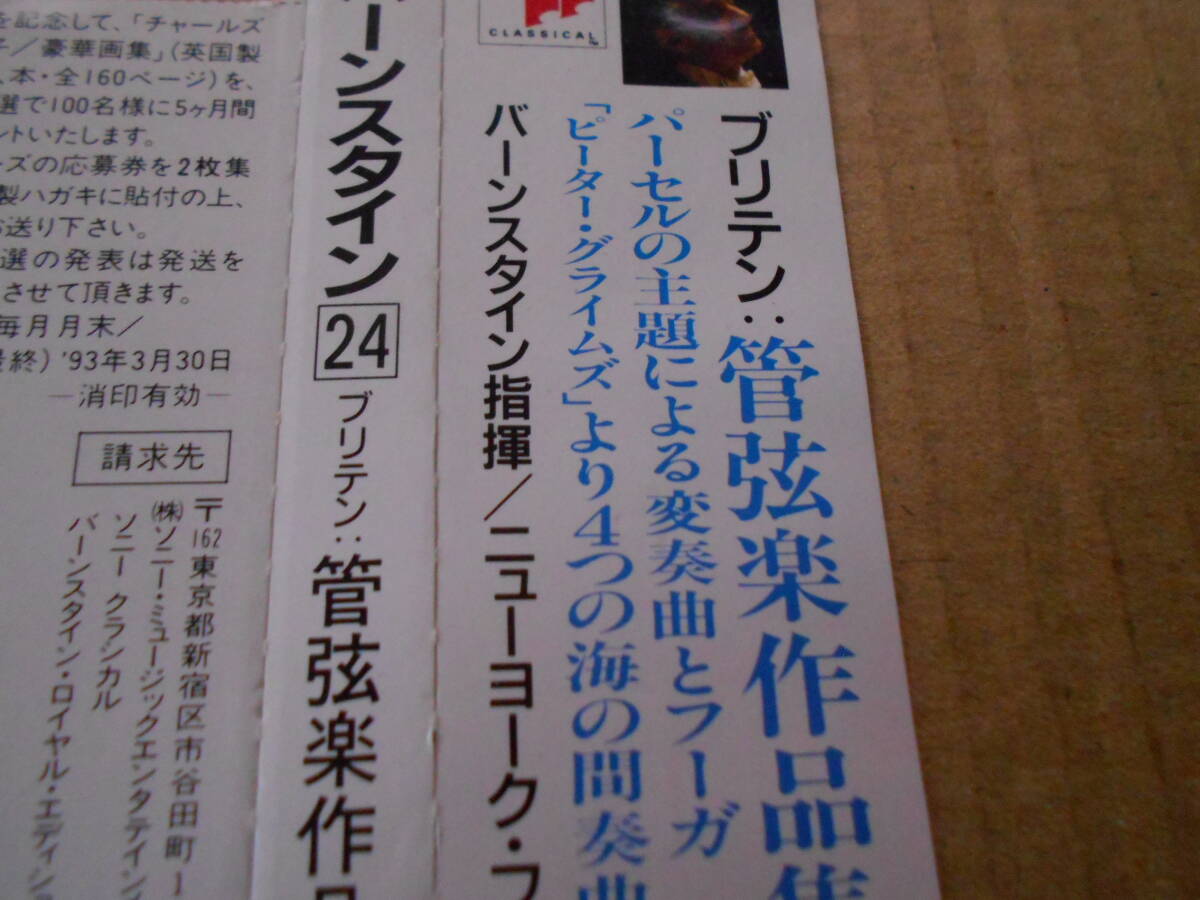 CLASSICAL
ブリテン:管弦楽作品集
パーセルの主題による変奏曲とフーガ
「ピーター・グライムズ」より4つの海の間奏曲
バーンスタイン指揮/ニューヨーク・フ
ーンスタイン 24 ブリテン:管弦楽作品
を記念して、「チャールズ
子/豪華画集」(英国製
本・全160ページ)を、
選で100名様に5ヶ月間
ントいたします。
ーズの応募券を2枚集
製ハガキに貼付の上、
お送り下さい。
選の発表は発送を
させて頂きます。
毎月月末/
終) '93年3月30日
—消印有効—
請求先
〒162東京都新宿区市谷田町1
(株)ソニー・ミュージックエンタテイン
ソニー クラシカル
バーンスタイン・ロイヤル・エディシ